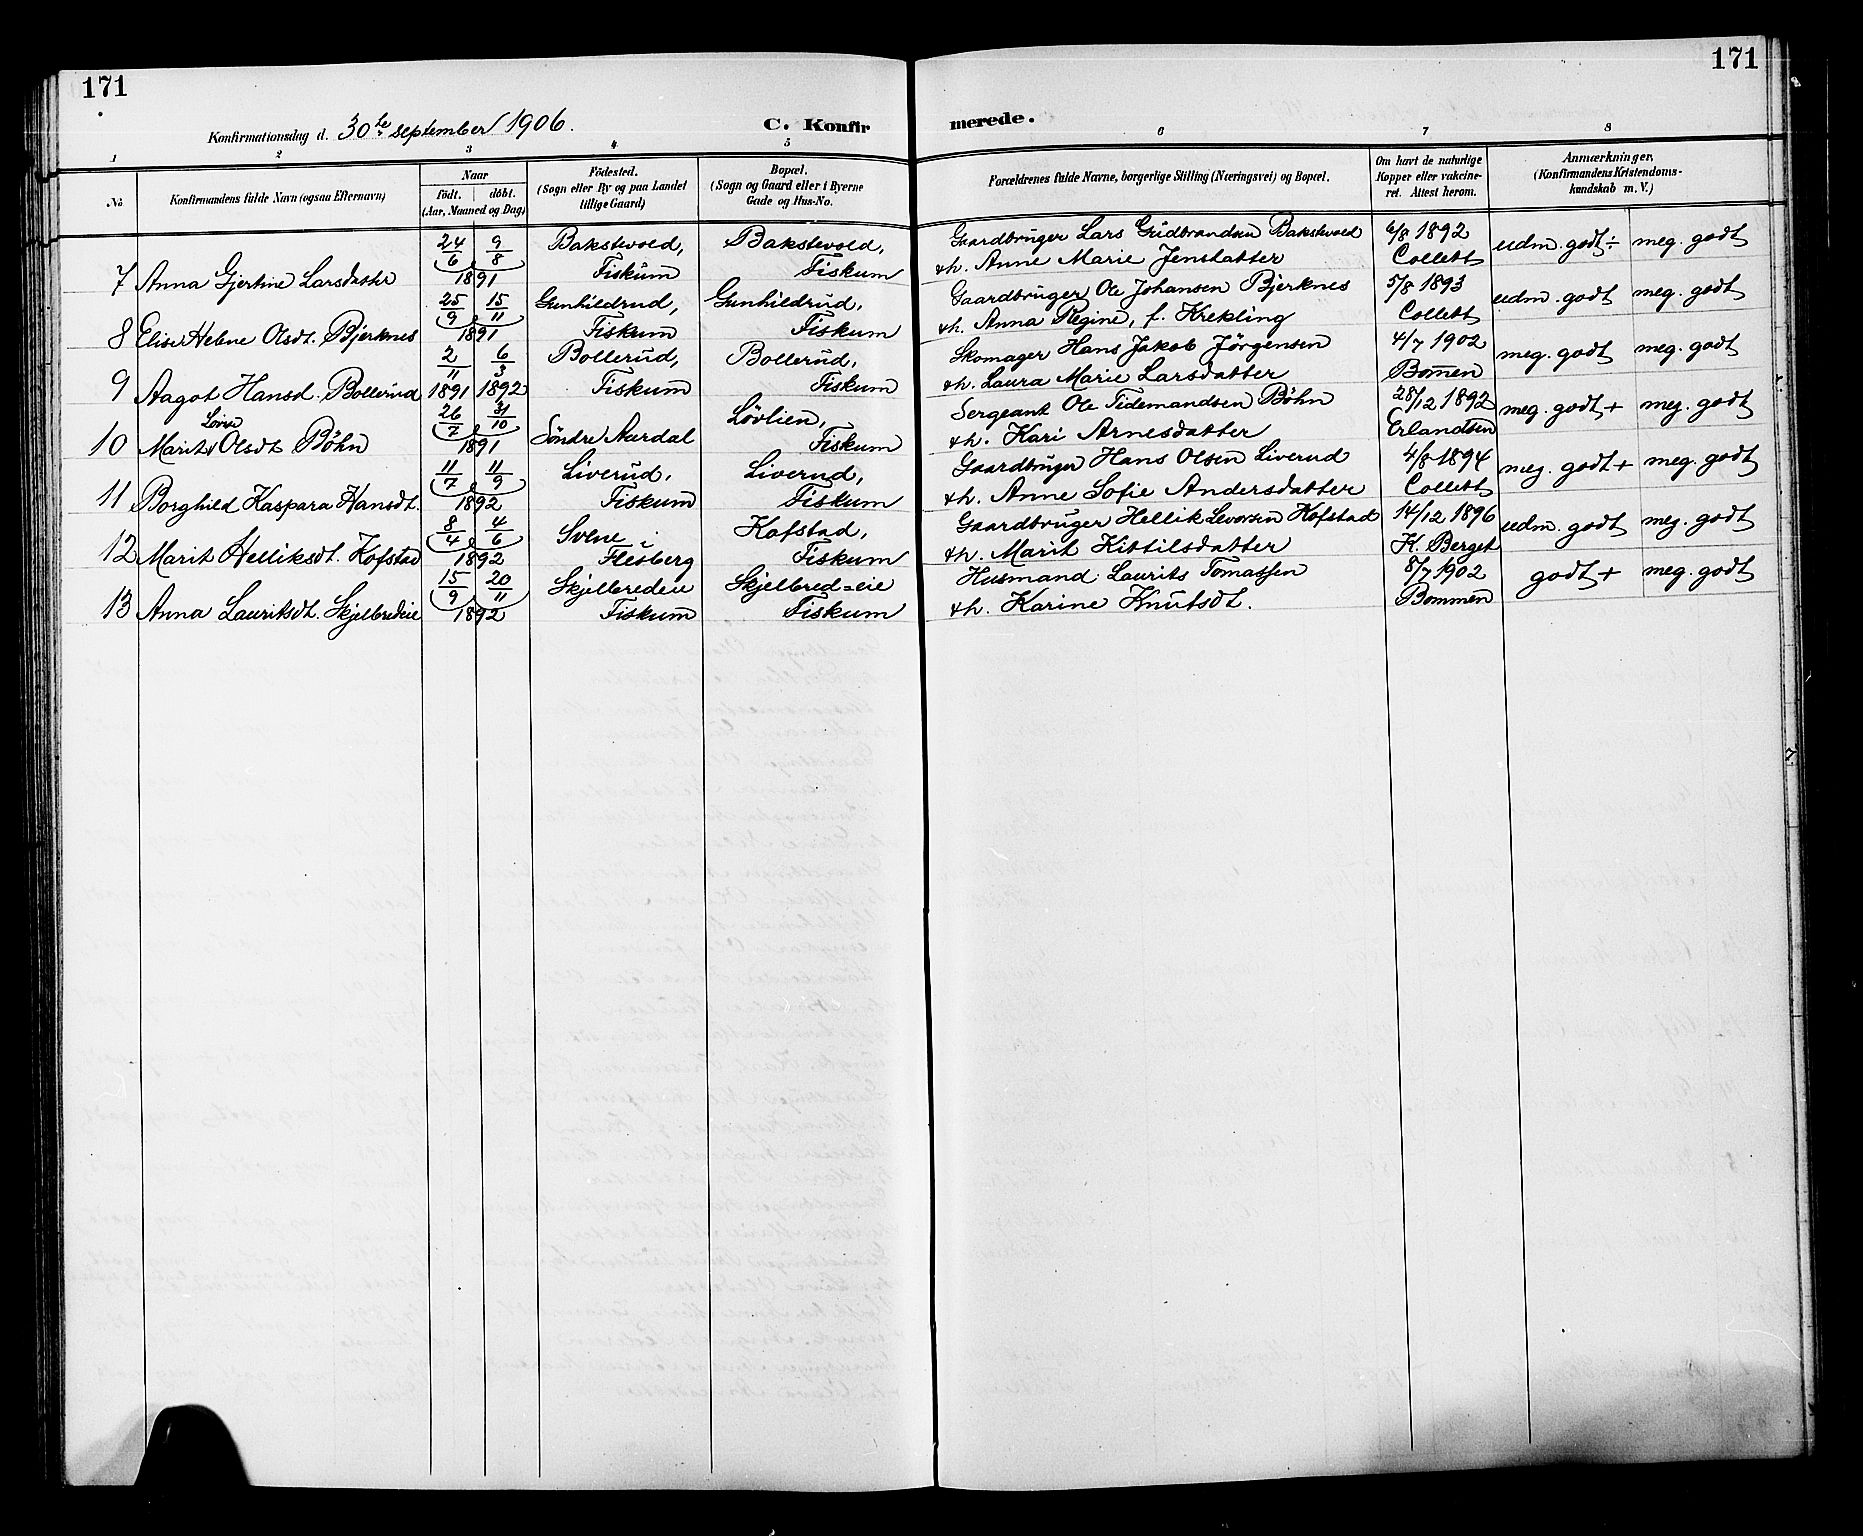 171
171
Konfirmationsdag d. 30te september 1906.
C. Konfirmerede.
1 2 3 4 5 6 7 8
No
Konfirmandens fulde Navn (ogsaa Efternavn)
Naar
födt. döbt.
(Aar, Maaned og Dag)
Födested.
(Sogn eller By og paa Landet
tillige Gaard)
Bopæl.
(Sogn og Gaard eller i Byerne
Gade og Hus-No.
Forældrenes fulde Navne, borgerlige Stilling (Næringsvei) og Bopæl.
Om havt de naturlige
Kopper eller vakcine-
ret. Attest herom.
Anmærkninger,
(Konfirmandens Kristendoms-
kundskab m. V.)
24/6 9/8 Bakstevold, Bakstevold, Gaardbruger Lars Gudbrandsen Bakstevold 6/8 1892 udm. godt ÷ meg. godt
7 Anna Gjertine Larsdatter 1891 Fiskum Fiskum & h. Anne Marie Jensdatter Collett
25/9 15/11 Gunhildrud, Gunhildrud, Gaardbruger Ole Johansen Bjerknes 5/8 1893 udm. godt meg. godt
8 Elise Helene Olsdt. Bjerknes 1891 Fiskum Fiskum & h. Anna Regine, f. Krekling Collett
2/11 6/3 Bollerud, Bollerud, Skomager Hans Jakob Jörgensen 4/7 1902 meg. godt meg. godt
9 Aagot Hansd. Bollerud 1891 1892 Fiskum Fiskum & h. Laura Marie Larsdatter Bommen
26/7 31/10 Lövlien, Sergeant Ole Tidemandsen Böhn 28/12 1892 meg. godt + meg. godt
10 Marit Lovise Olsdt Böhn 1891 Söndre Aurdal Fiskum & h. Kari Arnesdatter Erlandsen
11/7 11/9 Liverud, Liverud, Gaardbruger Hans Olsen Liverud 4/8 1894 meg. godt + meg. godt
11 Borghild Kaspara Hansdt. 1892 Fiskum Fiskum & h. Anne Sofie Andersdatter Collett
8/4 4/6 Svene Kofstad, Gaardbruger Hellik Leversen Kofstad 14/12 1896 udm. godt meg. godt
12 Marit Helliksdt. Kofstad 1892 Flesberg Fiskum & h. Marit Kittilsdatter K. Berget
15/9 20/11 Skjelbredeie Skjelbred=eie Husmand Laurits Tomassen 8/7 1902 godt + meg. godt
13 Anna Lauritsdt. Skjelbredeie 1892 Fiskum Fiskum & h. Karine Knutsdt. Bommen